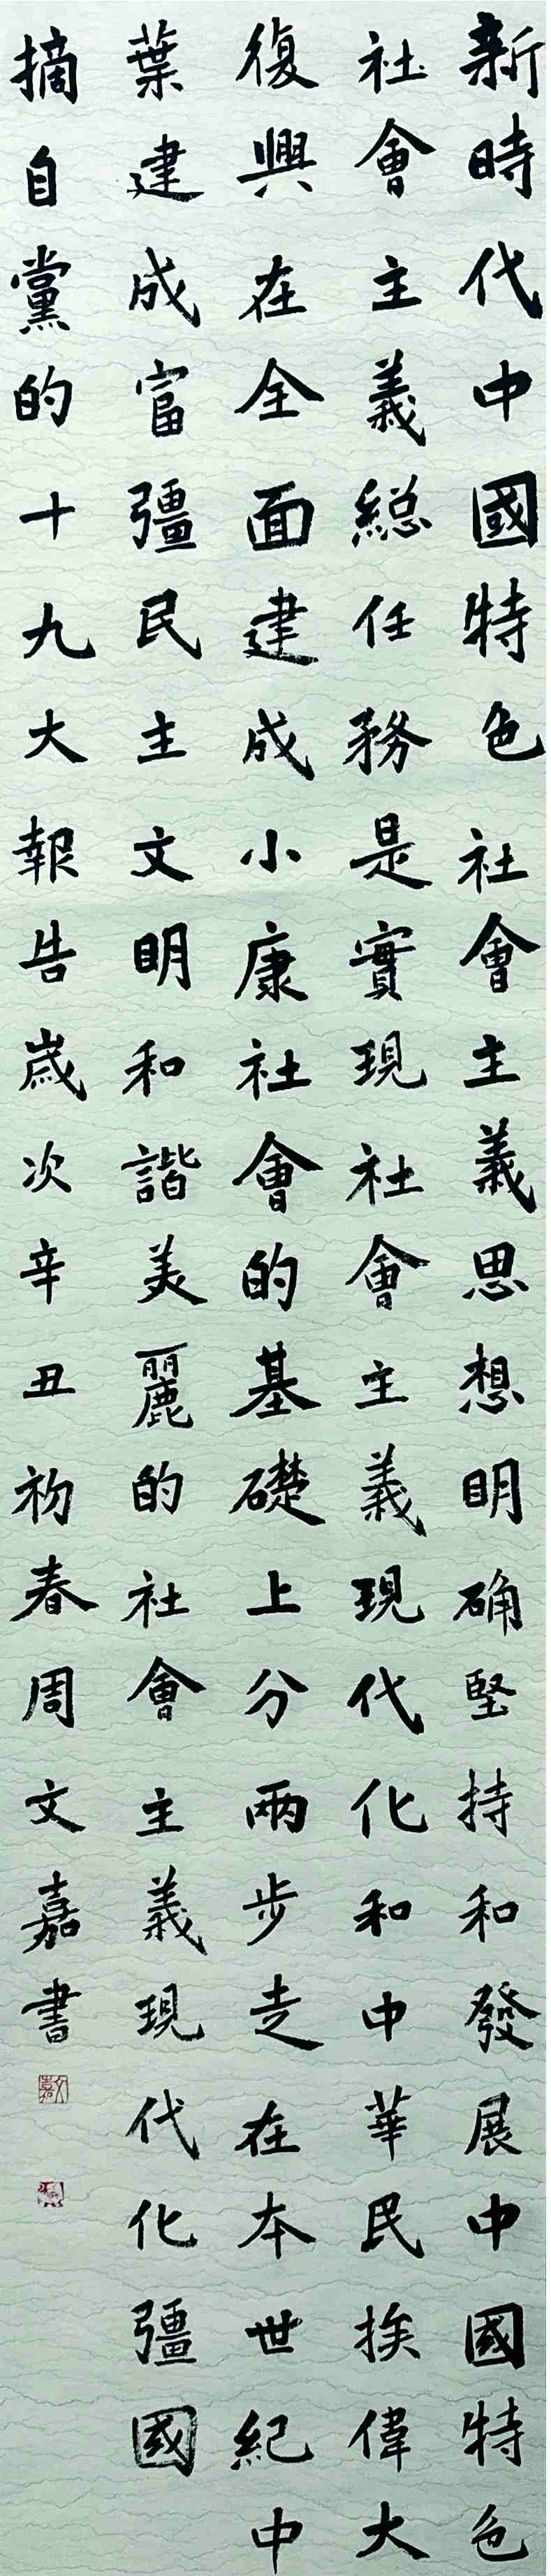 新時代中國特色社會主義思想明确堅持和發展中國特色
社會主義総任務是實現社會主義現代化和中華民挨偉大
復興在全面建成小康社會的基礎上分兩步走在本世紀中
葉建成富彊民主文明和諧美麗的社會主義現代化彊國
摘自黨的十九大報告歲次辛丑初春周文嘉書